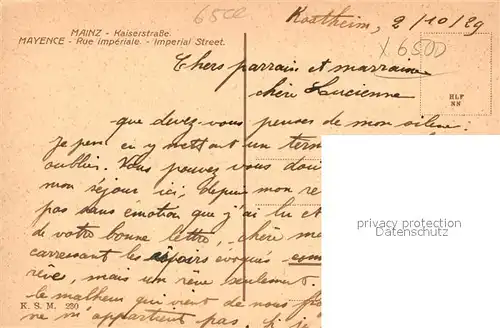 65ce
Kostheim, 2/10/29
MAINZ - Kaiserstraße.
MAYENCE - Rue impériale. - Imperial Street.
X 6500
Chers parrain et marraine
chère Lucienne
HLF
NN
que devez-vous penser de mon silence:
Je pen en y mettant un term
oublier. Vous pouvez vous dou
mon séjour ici, depuis mon re
pas sans émotion que j'ai lu et
de votre bonne lettre, chère ma
caressant les espoirs évoqués com
rêve, mais un rêve seulement.
le malheur qui vient de nous
ne m'appartient pas. Si je
privacy protection
Datenschutz
K. S. M. 230